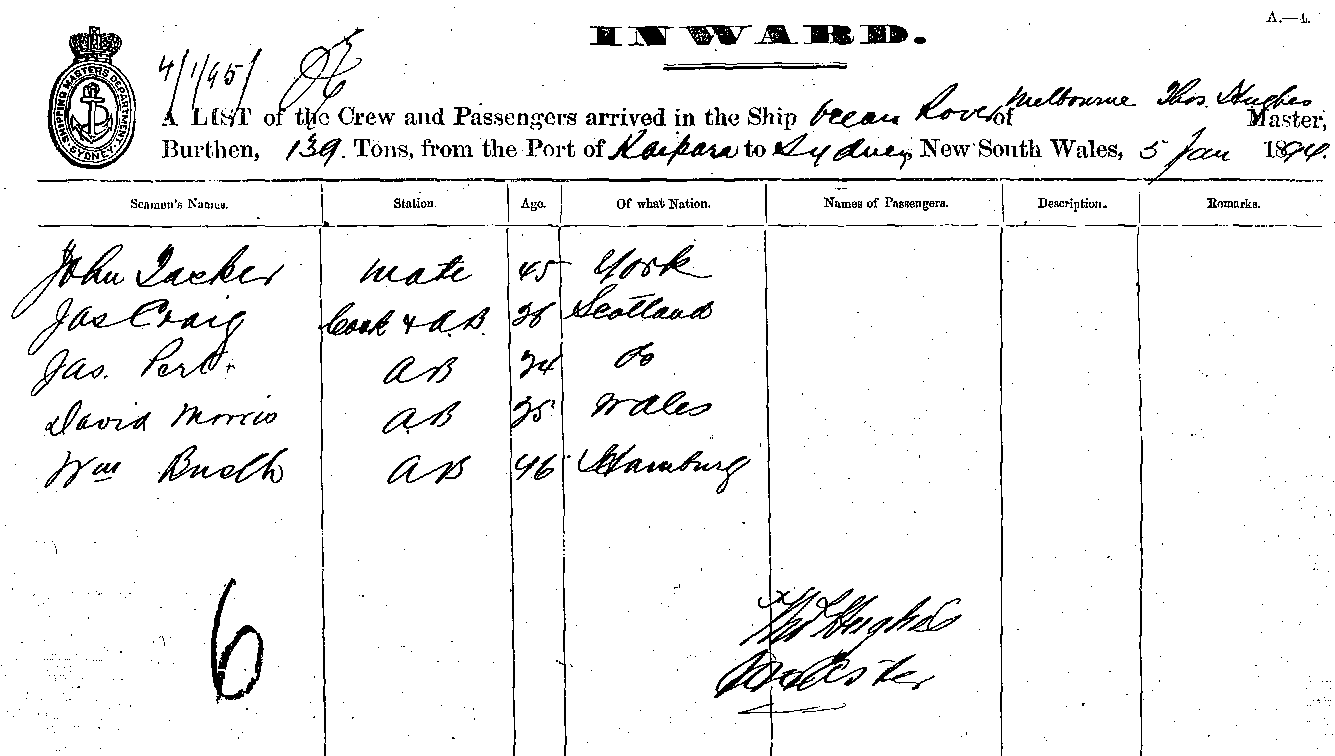 A.—4.
INWARD.
SHIPPING MASTERS DEPARTMENT SYDNEY
4/1/95/
A LIST of the Crew and Passengers arrived in the Ship Ocean Rover of Melbourne Thos. Hughes Master,
Burthen, 139. Tons, from the Port of Kaipara to Sydney, New South Wales, 5 Jan 1894.
Seamen's Names. Station. Age. Of what Nation. Names of Passengers. Description. Remarks.
John Tacker mate 45 York
Jas Craig Cook & A.B. 36 Scotland
Jas. AB 24 do
David Morris AB 35 Wales
Wm AB 46 Hamburg
6
Thos Hughes
Master